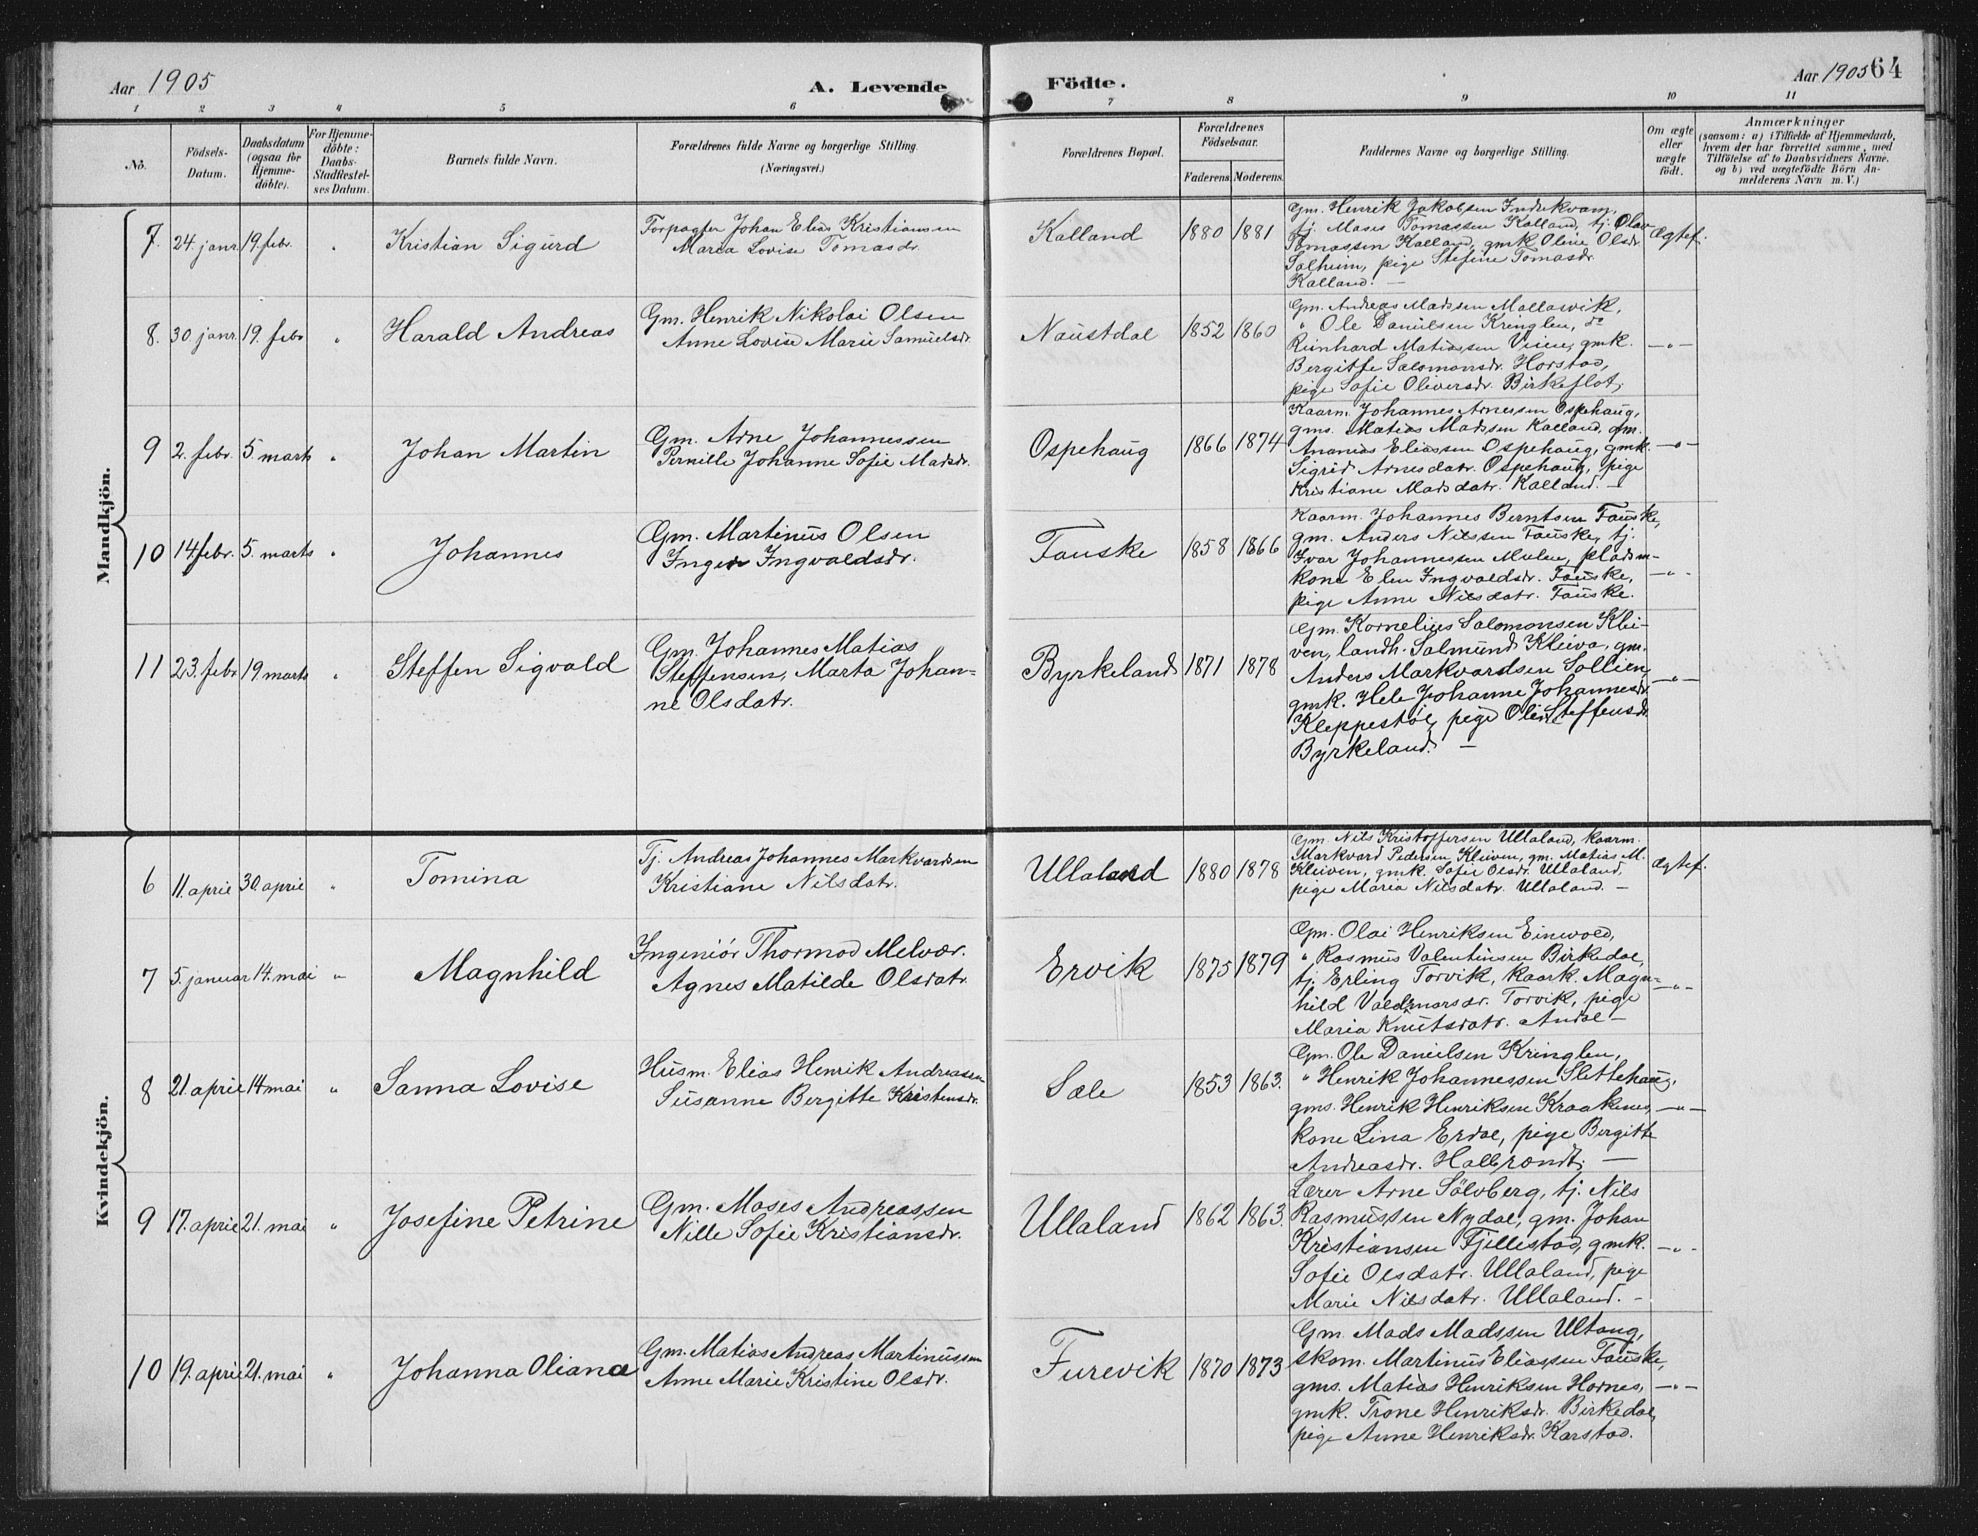 Aar 1905
A. Levende
Födte.
Aar 1905 64
1 2 3 4 5 6 7 8 9 10 11
No.
Födsels-
Datum.
Daabsdatum
(ogsaa for
Hjemme-
døbte).
For Hjemme-
døbte:
Daabs-
Stadfæstel-
ses Datum.
Barnets fulde Navn.
Forældrenes fulde Navne og borgerlige Stilling.
(Næringsvei.)
Forældrenes Bopæl.
Forældrenes
Födselsaar.
Faderens. Moderens.
Faddernes Navne og borgerlige Stilling.
Om ægte
eller
uægte
födt.
Anmærkninger
(saasom: a) i Tilfælde af Hjemmedaab,
hvem der har forrettet samme, med
Tilföielse af to Daabsvidners Navne,
og b) ved uægtefödte Börn An-
melderens Navn m. V.)
Mandkjön.
7. 24 janr. 19 febr. " Kristian Sigurd
Forpagter Johan Elias Kristiansen
Maria Lovise Tomasdr.
Kalland 1880 1881
Gm. Henrik Jakobsen Indrekvam,
tj. Moses Tomassen Kalland, tj. Olav
Tomassen Kalland, gmk Oline Olsdr.
Solheim, pige Stefine Tomasdr.
Kalland. —
Ægtef.
8. 30 janr. 19. febr " Harald Andreas
Gm. Henrik Nikolai Olsen
Anne Lovise Marie Samuelsdr.
Naustdal 1852 1860
Gm. Andreas Madssen Mallasvik,
" Ole Danielsen Kringlen, do
Reinhard Matiassen Vieng, gmk.
Bergitte Salomonsdr. Horstad,
pige Sofie Oliversdr. Birkeflot,
—"—
9 2. febr. 5 marts " Johan Martin
Gm. Arne Johannessen
Pernille Johanne Sofie Madsdr.
Ospehaug 1866 1874
Kaarm. Johannes Arnessen Ospehaug,
gms. Matias Madssen Kalland, gm.
Ananias Eliassen Ospehaug, gmk.
Sigrid Arnesdatr. Ospehaug, pige
Kristiane Madsdatr. Kalland. —
—"—
10 14. febr. 5. marts " Johannes
Gm. Martinus Olsen
Inger Ingvaldsdr.
Fauske 1858 1866
Kaarm. Johannes Berntsen Fauske,
gm. Anders Nilssen Fauske, tj.
Ivar Johannessen Mulen, pladsm-
kone Elen Ingvaldsdr. Fauske,
pige Anne Nilsdatr. Fauske.
—"—
11 23. febr 19 marts " Steffen Sigvald
Gm. Johannes Matias
Steffensen, Marta Johan-
ne Olsdatr.
Byrkeland 1871 1878
Gm. Kornelius Salomonsen Klei-
ven, landh. Salmund Kleiva, gm.
Anders Markvardsen Sollien,
gmk. Hele Johanne Johannesdr.
Kleppestöl, pige Oline Steffensdr.
Byrkeland. —
—"—
Kvindekjön.
6 11. april 30. april " Tomina
Tj. Andreas Johannes Markvardsen
Kristiane Nilsdatr.
Ullaland 1880 1878
Gm. Nils Kristoffersen Ullaland, kaarm.
Markvard Pedersen Kleiven, gm. Matias M.
Kleiven, gmk. Sofie Olsdr. Ullaland,
pige Maria Nilsdatr. Ullaland. —
Ægtef.
7 5. januar 14. mai " Magnhild
Ingeniör Thormod Melvær.
Agnes Matilde Olsdatr
Ervik 1875 1879
Gm. Olai Henriksen Einevold,
" Rasmus Valentinsen Birkedal,
tj. Erling Torvik, kaark. Magn-
hild Valdemarsdr. Torvik, pige
Maria Knutsdatr. Andal —
—"—
8 21. april 14 mai " Sanna Lovise
Husm. Elias Henrik Andreasen
Susanne Bergitte Kristensdr.
Sæle 1853 1863.
Gm. Ole Danielsen Kringlen,
" Henrik Johannessen Slettehaug,
gms. Henrik Henriksen Kraakenes,
kone Lina Erdal, pige Bergitte
Andreasdr. Halbrændt. —
—"—
9 17. april 21. mai " Josefine Petrine
Gm. Moses Andreassen
Nille Sofie Kristiansdr.
Ullaland 1862 1863.
Lærer Arne Sölvberg, tj. Nils
Rasmussen Nydal, gm. Johan
Kristiansen Fjellestad, gmk.
Sofie Olsdatr. Ullaland, pige
Marie Nilsdatr. Ullaland. —
—"—
10 19. april 21. mai " Johanna Oliana
Gm. Matias Andreas Martinussen
Anne Marie Kristine Olsdr.
Furevik 1870 1873
Gm. Mads Madssen Ultang,
skom. Martinus Eliassen Fauske,
gms. Matias Henriksen Hornes,
gmk. Trone Henriksdr. Birkedal,
pige Anne Henriksdr. Karstad.
—"—